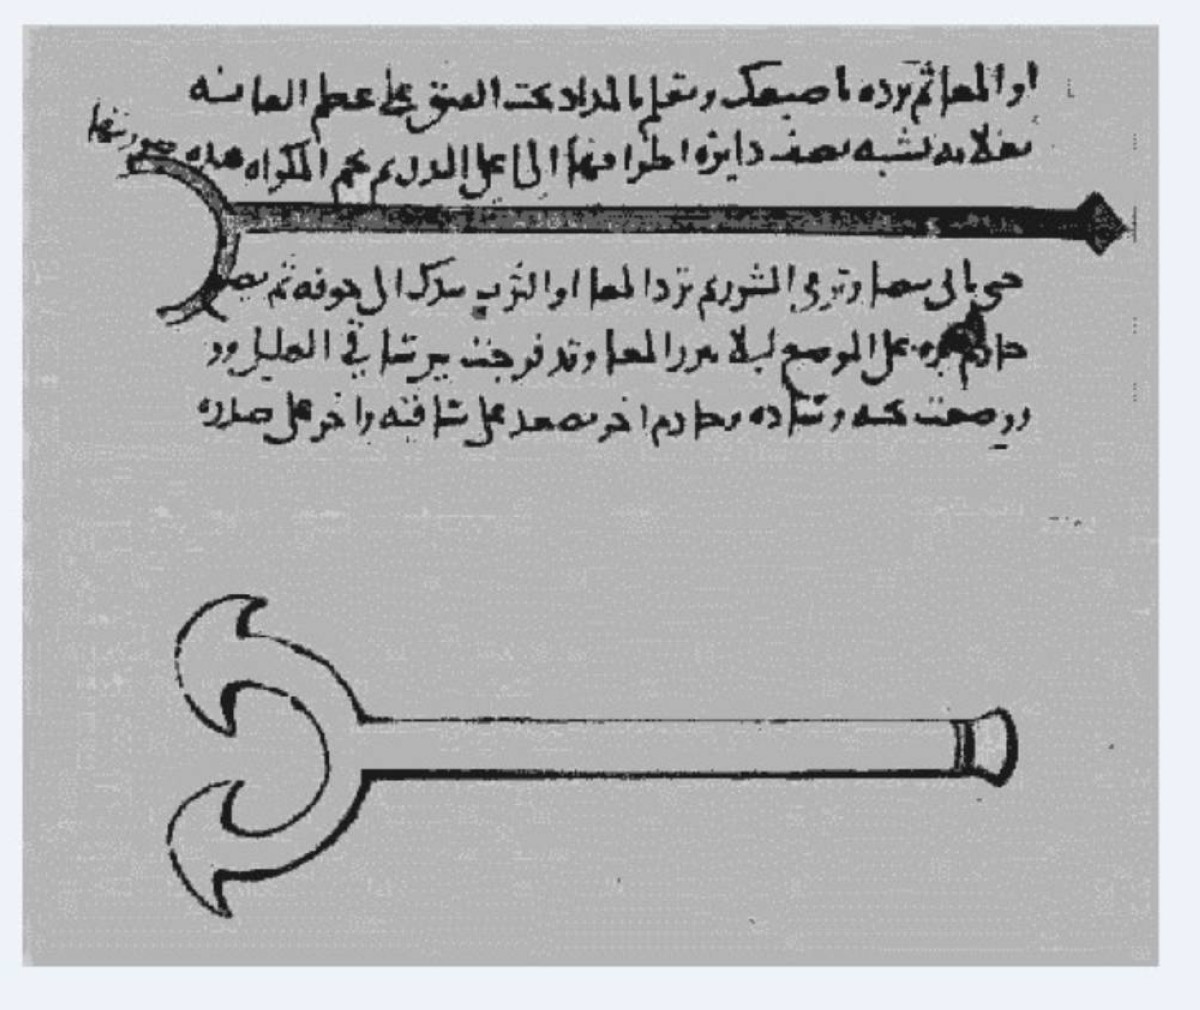 او المعا ثم ترده باصبعك وتعلم بالمداد تحت الفتق على عظم العانه
بعلامه تشبه نصف دايره اطرافها الى اعلى البدن ثم تحم المكواه هذه صورتها
حتى بيضا وترمي الشرر ثم ترد المعا او الثرب بيدك الى جوفه ثم يضع
خادم يده على الموضع ليلا يبرز المعا وقد فرجت بين ساقي العليل
ووضعت تحته وساده وخادم اخر يقعد على ساقيه واخر على صدره